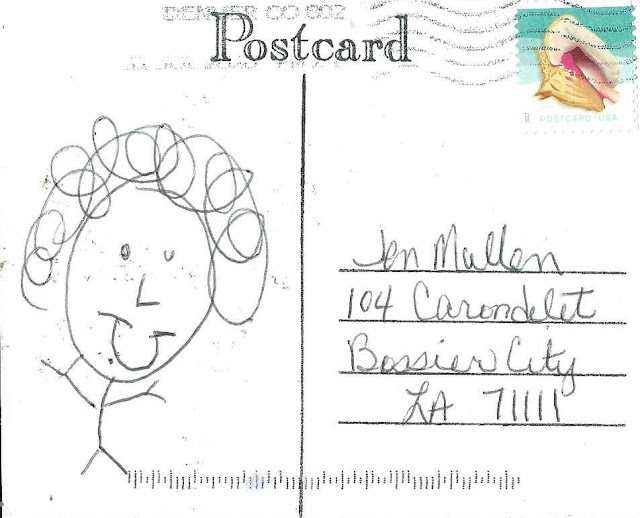 DENVER CO 802
Postcard
POSTCARD · USA
Jen Mullen
104 Carondelet
Bossier City
LA 71111